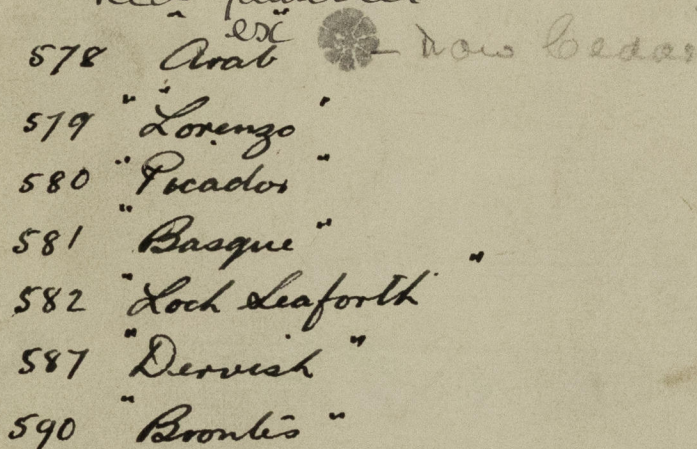 ex
578 "Arab" - now Cedar
579 "Lorenzo"
580 "Picador"
581 "Basque"
582 "Loch Seaforth"
587 "Dervish"
590 "Brontës"